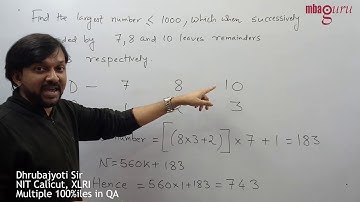 mba guru
Find the largest number ≤ 1000, which when successively
ded by 7, 8 and 10 leaves remainders
respectively.
D – 7 8 10
3
number = [(8×3+2)] × 7 + 1 = 183
N = 560K + 183
Hence = 560×1+183 = 743
Dhrubajyoti Sir
NIT Calicut, XLRI
Multiple 100%iles in QA